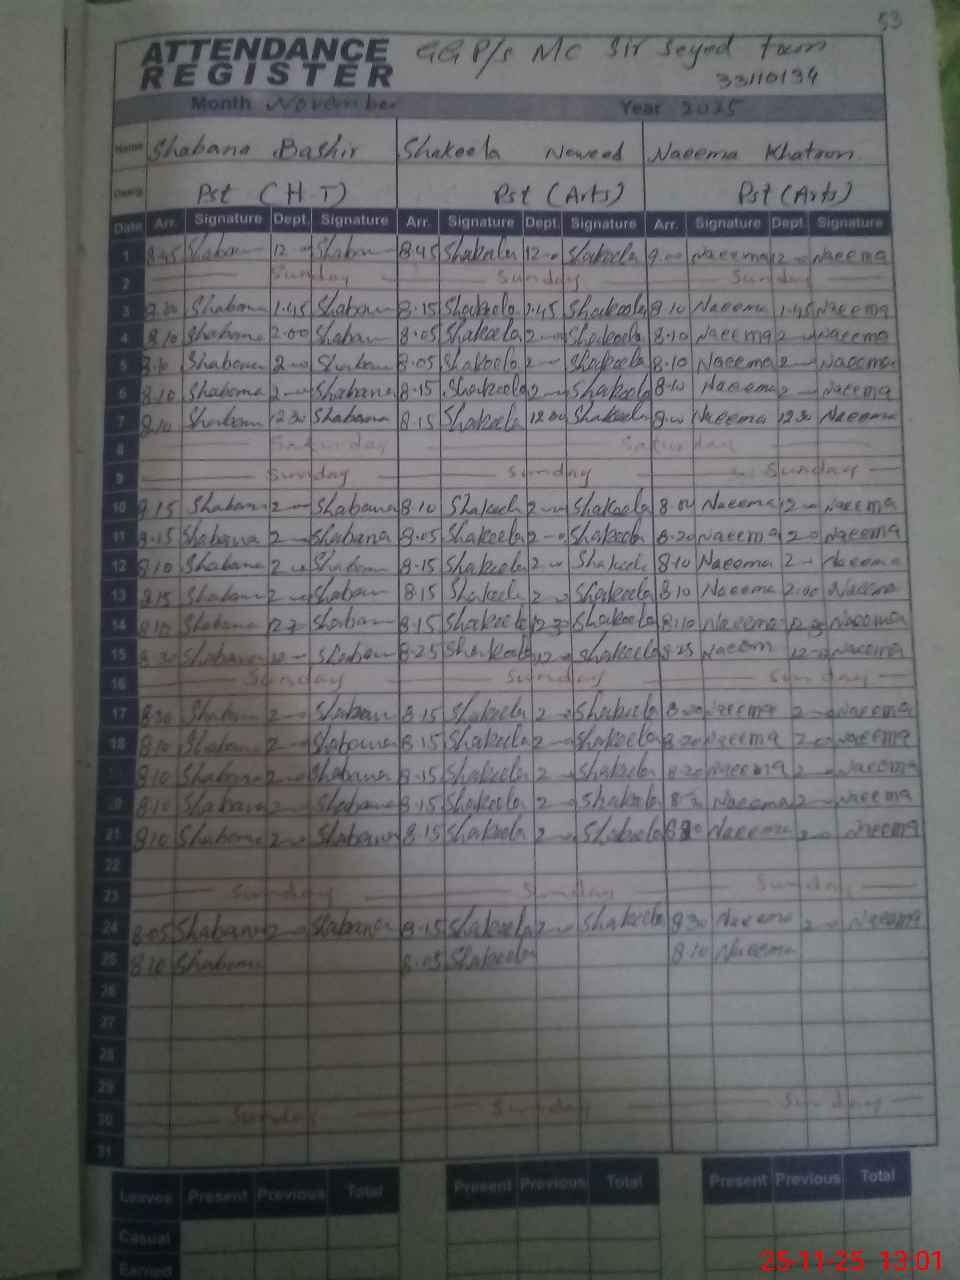 53
ATTENDANCE REGISTER GGP/s MC Sir Seyed town
33110134
Month November Year 2025
Name Shabana Bashir Shakeela Naweed Naeema Khatoon
Desig Pst (H.T) Pst (Arts) Pst (Arts)
Date Arr. Signature Dept. Signature Arr. Signature Dept. Signature Arr. Signature Dept. Signature
1 8.45 Shaban 12 Shaban 8.45 Shakeela 12 Shakeela 9.00 Naeema 12 Naeema
2 Sunday Sunday Sunday
3 Shabana 1.45 Shabana 8.15 Shakeela 1.45 Shakeela 8.10 Naeema 1.45 Naeema
4 8.10 Shabana 2.00 Shaban 8.05 Shakeela 2 Shakeela 8.10 Naeema 2 Naeema
5 8.10 Shabana 2 Shaban 8.05 Shakeela 2 Shakeela 8.10 Naeema 2 Naeema
6 8.10 Shabana 2 Shabana 8.15 Shakeela 2 Shakeela 8.10 Naeema 2 Naeema
7 8.10 Shabana 12 30 Shabana 8.15 Shakeela Shakeela Naeema 12 30 Naeema
8 Saturday Saturday
9 Sunday Sunday Sunday
10 8.15 Shaban 2 Shabana 8.10 Shakeela 2 Shakeela Naeema 2 Naeema
11 8.15 Shabana 2 Shabana 8.05 Shakeela 2 Shakeela 8.20 Naeema 2 Naeema
12 8.10 Shabana 2 Shaban 8.15 Shakeela 2 Shakeela 8.10 Naeema 2 Naeema
13 8.15 Shaban 2 Shaban 8.15 Shakeela 2 Shakeela 8.10 Naeema 2.00 Naeema
14 8.10 Shabana Shaban 8.15 Shakeela 12.30 Shakeela 8.10 Naeema Naeema
15 8.30 Shabana Shaban 8.25 Shakeela 12 Shakeela 8.25 Naeem 12 Naeema
16 Sunday Sunday Sunday
17 8.30 Shaban 2 Shaban 8.15 Shakeela 2 Shakeela Naeema 2 Naeema
18 8.10 Shabana 2 Shabana 8.15 Shakeela 2 Shakeela 8.20 Naeema 2 Naeema
8.10 Shabana 2 Shabana 8.15 Shakeela 2 Shakeela 8.20 Naeema 2 Naeema
20 8.10 Shabana 2 Shabana 8.15 Shakeela 2 Shakeela Naeema 2 Naeema
21 8.10 Shabana 2 Shabana 8.15 Shakeela 2 Shakeela Naeema 2 Naeema
22
23 Sunday Sunday Sunday
24 8.05 Shabana 2 Shabana 8.15 Shakeela 2 Shakeela 8.30 Naeema 2 Naeema
25 8.10 Shabana 8.05 Shakeela 8.10 Naeema
26
27
28
29
30 Sunday Sunday Sunday
31
Leaves Present Previous Total Present Previous Total Present Previous Total
Casual
Earned
25-11-25 13:01